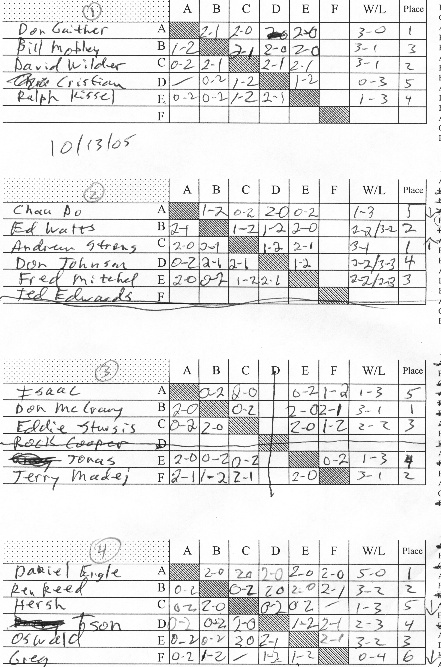 1 A B C D E F W/L Place
Don Gaither A 2-1 2-0 2-0 3-0 1
Bill Mobley B 1-2 2-1 2-0 2-0 3-1 3
David Wilder C 0-2 2-1 2-1 2-1 3-1 2
Cristian D 0-2 1-2 1-2 0-3 5
Ralph Kissel E 0-2 0-2 1-2 2-1 1-3 4
F
10/13/05
2 A B C D E F W/L Place
Chau Do A 1-2 0-2 2-0 0-2 1-3 5
Ed Watts B 2-1 1-2 1-2 2-0 2-2/3-2 2
Andrew Strong C 2-0 2-1 1-2 2-1 3-1 1
Don Johnson D 0-2 2-1 2-1 1-2 2-2/3-3 4
Fred Mitchel E 2-0 0-2 1-2 2-1 2-2/2-3 3
Ted Edwards F
3 A B C D E F W/L Place
Isaac A 0-2 2-0 0-2 1-2 1-3 5
Don McCrary B 2-0 0-2 2-0 2-1 3-1 1
Eddie Sturgis C 0-2 2-0 2-0 1-2 2-2 3
Rock Cooper D
Jonas E 2-0 0-2 0-2 0-2 1-3 4
Jerry Madej F 2-1 1-2 2-1 2-0 3-1 2
4 A B C D E F W/L Place
Daniel Eigle A 2-0 2-0 2-0 2-0 2-0 5-0 1
Ben Reed B 0-2 0-2 2-0 2-0 2-1 3-2 2
Hersh C 0-2 2-0 0-2 0-2 1-3 5
D 0-2 0-2 2-0 1-2 2-1 2-3 4
Oswald E 0-2 0-2 2-0 2-1 2-1 3-2 3
Greg F 0-2 1-2 1-2 1-2 0-4 6